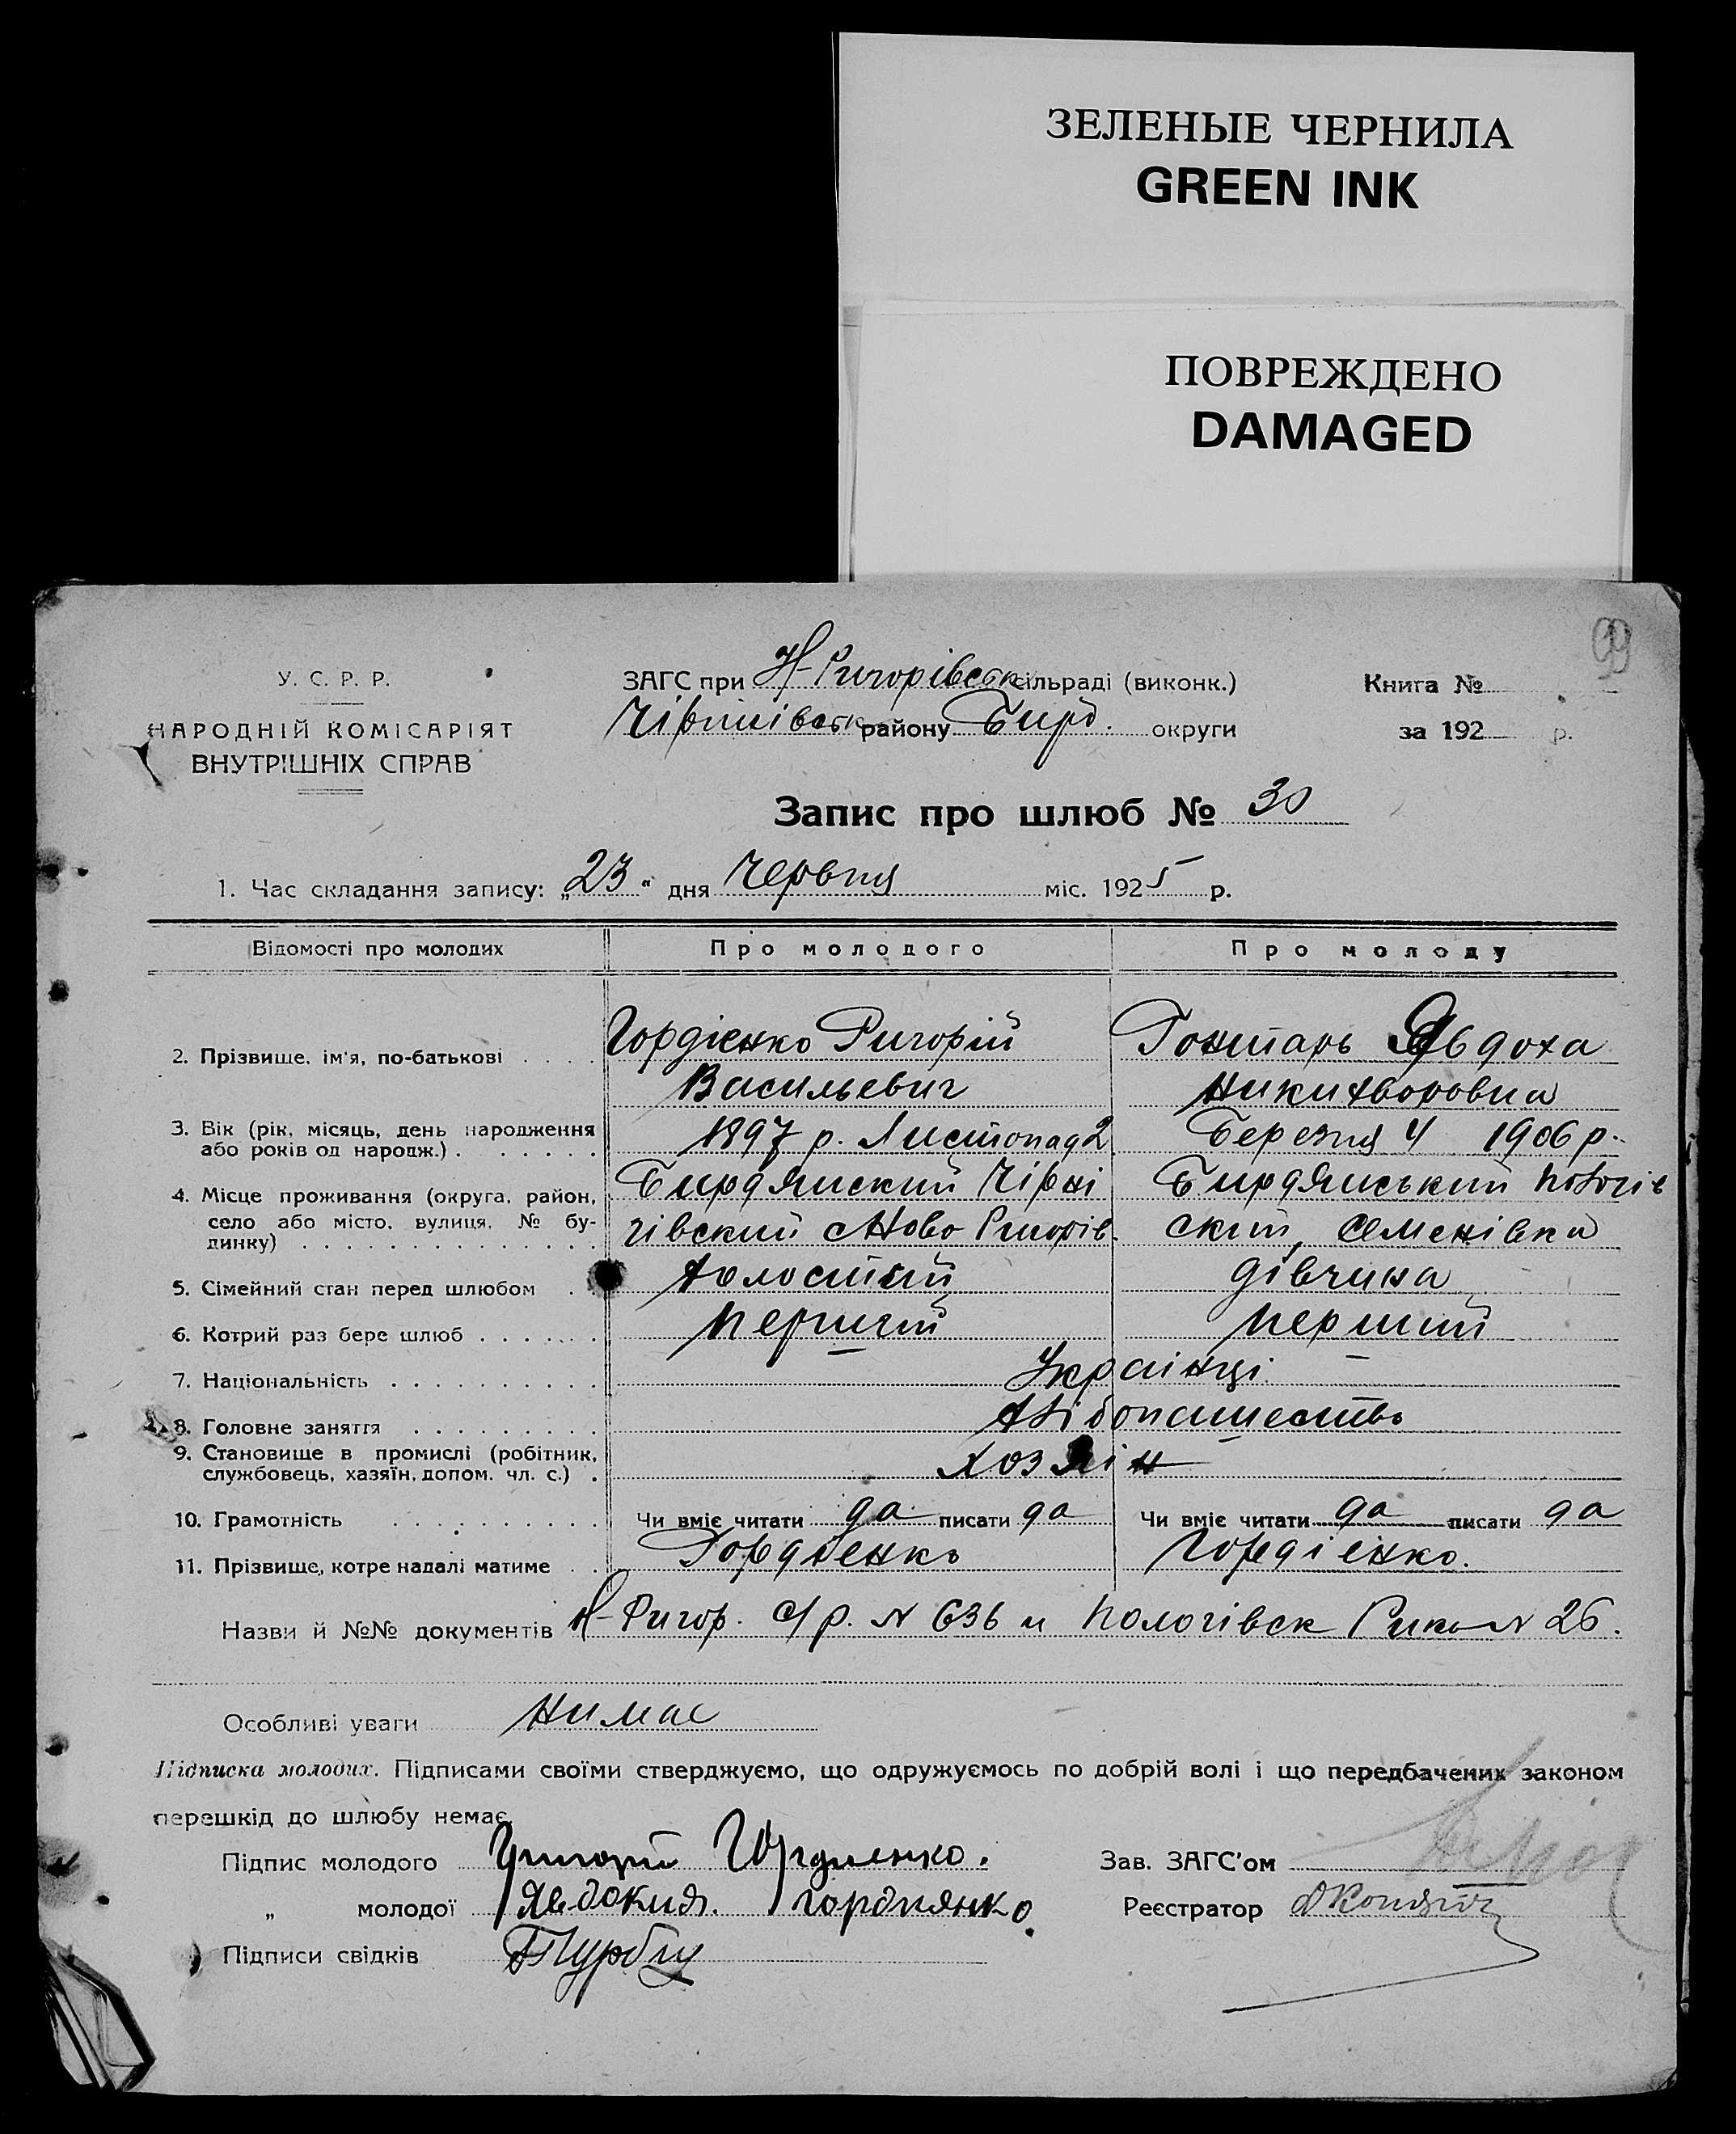 ЗЕЛЕНЫЕ ЧЕРНИЛА
GREEN INK
ПОВРЕЖДЕНО
DAMAGED
99
У. С. Р. Р.
НАРОДНІЙ КОМІСАРІЯТ
ВНУТРІШНІХ СПРАВ
ЗАГС при Н-Ригорівськ сільраді (виконк.)
Чірнігівськ району Бирд. округи
Книга №
за 192 р.
Запис про шлюб № 30
1. Час складання запису: „23" дня Червня міс. 1925 р.
Відомості про молодих Про молодого Про молоду
2. Прізвище, ім'я, по-батькові Гордієнко Ригорій Гонтарь Явдоха
Васильевич Никихворовна
3. Вік (рік, місяць, день народження 1897 р. Листопад 2 Березня 4 1906 р.
або років од народж.)
4. Місце проживання (округа, район, Бирдянский Чірні Бирдянський Пологів
село або місто, вулиця, № бу- гівский Ново Ригорів. ский, Семенівка
динку)
5. Сімейний стан перед шлюбом Холостий дівчина
6. Котрий раз бере шлюб перший перший
7. Національність Украінці
8. Головне заняття Хлібопашество
9. Становище в промислі (робітник, Хозяін
службовець, хазяїн, допом. чл. с.)
10. Грамотність Чи вміє читати да писати да Чи вміє читати да писати да
11. Прізвище, котре надалі матиме Гордіенко Гордіенко.
Назви й №№ документів Н-Ригор. с/р. № 636 и Пологівск Рика № 26.
Особливі уваги Нимає
Підписка молодих. Підписами своїми стверджуємо, що одружуємось по добрій волі і що передбачених законом
перешкід до шлюбу немає.
Підпис молодого Григорий Гордиенко. Зав. ЗАГС'ом
„ молодої Явдокия. Гордиянко. Реєстратор
Підписи свідків